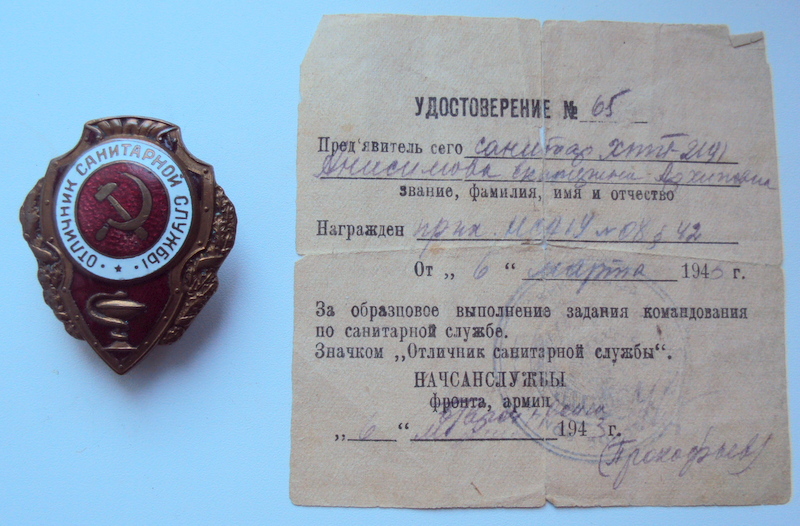 ОТЛИЧНИК САНИТАРНОЙ СЛУЖБЫ
УДОСТОВЕРЕНИЕ № 65
Пред'явитель сего санитар
Анисимова Архиповна
звание, фамилия, имя и отчество
Награжден
От „ 6 “ марта 194 г.
За образцовое выполнение задания командования
по санитарной службе.
Значком „Отличник санитарной службы“.
НАЧСАНСЛУЖБЫ
фронта, армии
„ 6 “ 1943 г.
(Прокофьев)